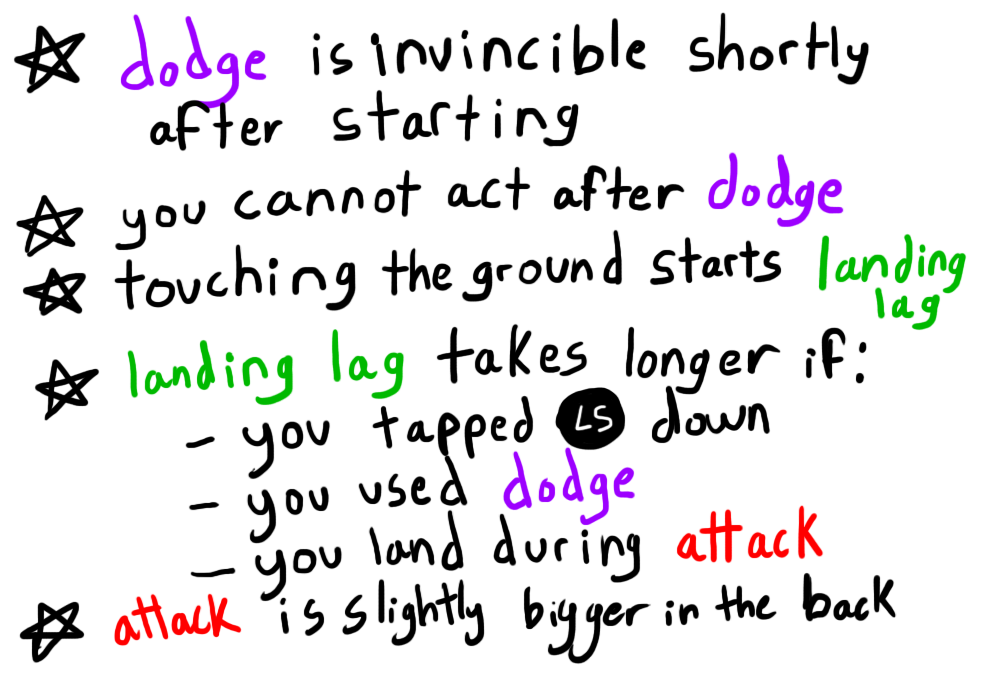 ☆ dodge is invincible shortly
after starting
☆ you cannot act after dodge
☆ touching the ground starts landing
lag
☆ landing lag takes longer if:
- you tapped LS down
- you used dodge
- you land during attack
☆ attack is slightly bigger in the back